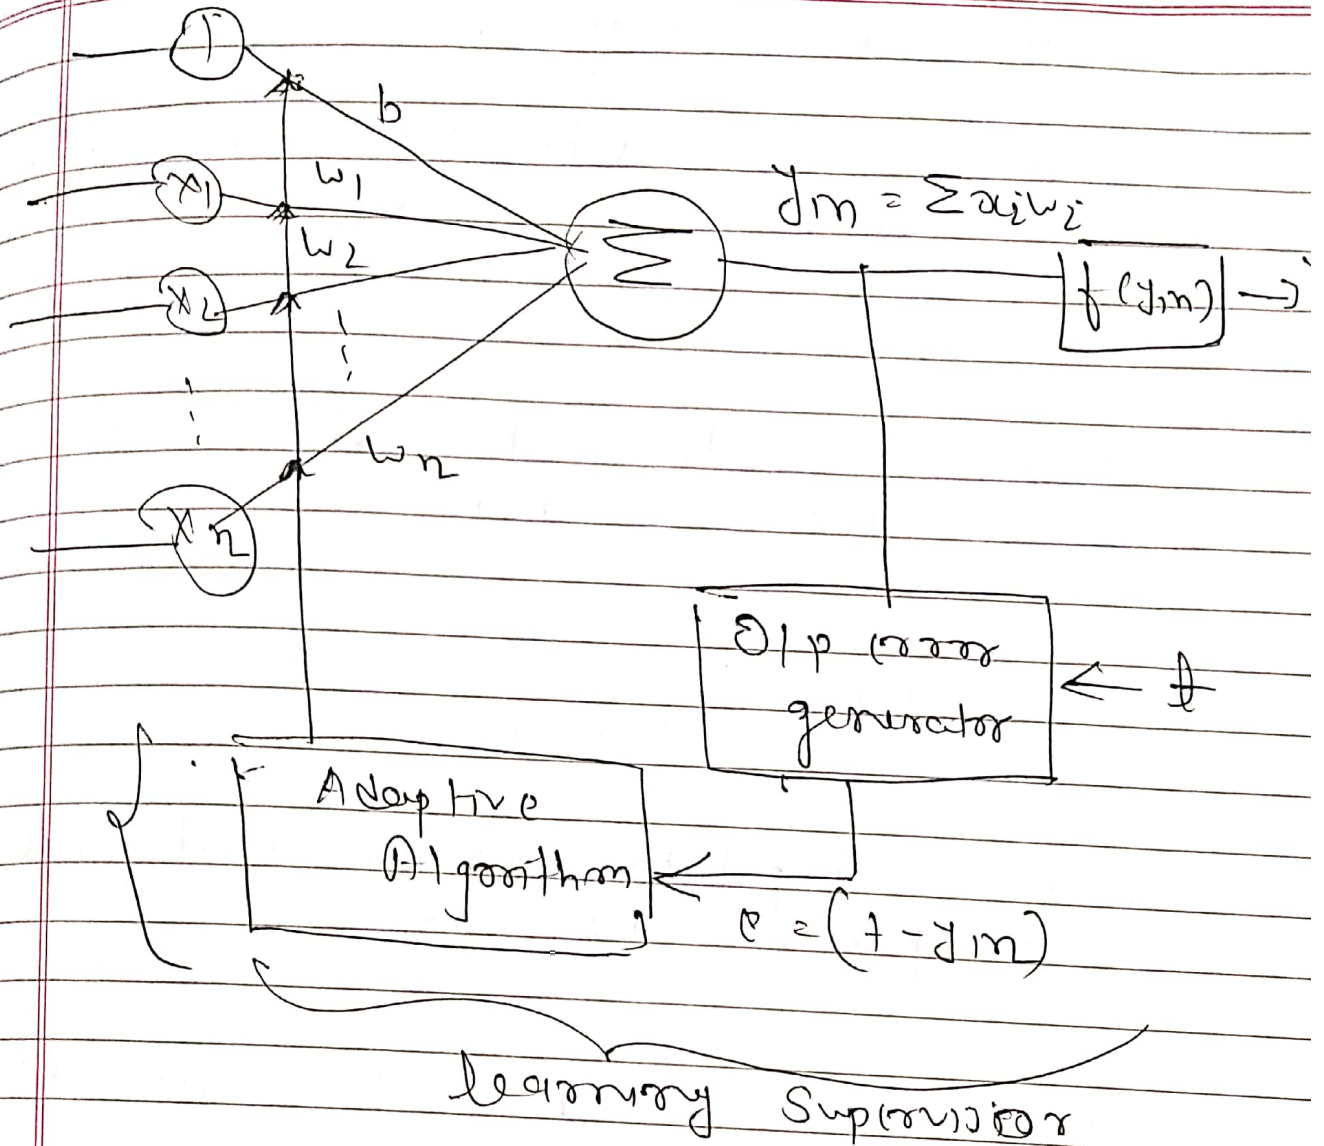 1
b
x1
w1
yin = Σxiwi
w2
x2
Σ
f(yin) →
wn
xn
O/p error
generator
← t
Adaptive
Algorithm
e = (t - yin)
learning supervisior